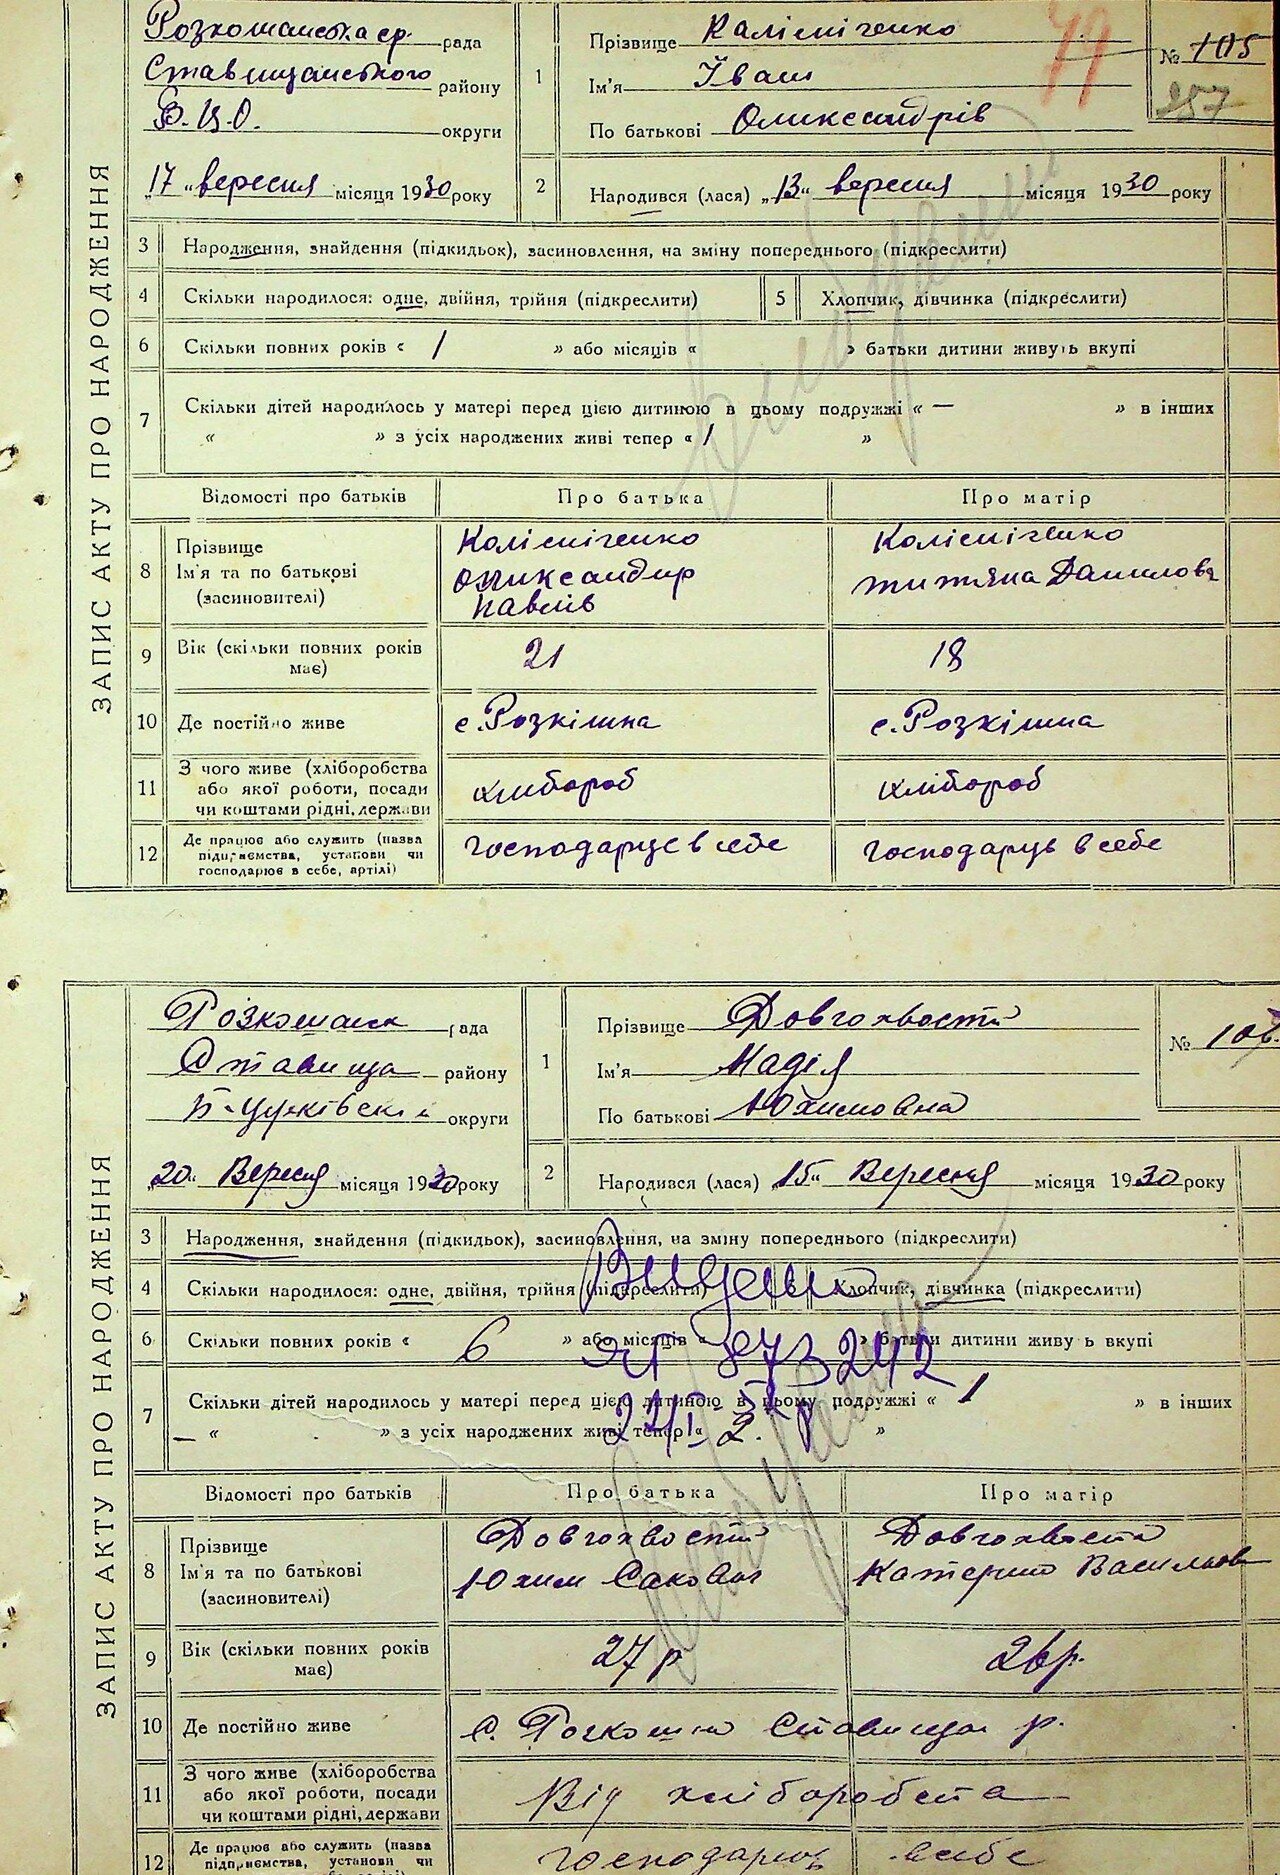 ЗАПИС АКТУ ПРО НАРОДЖЕННЯ
Розкошанська ср. рада
Ставищанського району
Б.Ц.О. округи
„17“ вересня місяця 1930 року
1 Прізвище Калісніченко
Ім'я Іван
По батькові Олександрів
79
№ 105
257
2 Народився (лася) „13“ вересня місяця 1930 року
3 Народження, знайдення (підкидьок), засиновлення, на зміну попереднього (підкреслити)
4 Скільки народилося: одне, двійня, трійня (підкреслити) 5 Хлопчик, дівчинка (підкреслити)
6 Скільки повних років « 1 » або місяців « » батьки дитини живуть вкупі
7 Скільки дітей народилось у матері перед цією дитиною в цьому подружжі « — » в інших
« » з усіх народжених живі тепер « 1 »
Відомості про батьків Про батька Про матір
8 Прізвище Колісніченко Колісніченко
Ім'я та по батькові Олександир Титяна Данилова
(засиновителі) Павлів
9 Вік (скільки повних років має) 21 18
10 Де постійно живе с. Розкішна с. Розкішна
11 З чого живе (хліборобства або якої роботи, посади чи коштами рідні, держави хлібороб хлібороб
12 Де працює або служить (назва підприємства, установи чи господарює в себе, артілі) господарує в себе господарує в себе
ЗАПИС АКТУ ПРО НАРОДЖЕННЯ
Розкошанск рада
Ставища району
Б-Цунківскі округи
„20“ Вересня місяця 1930 року
1 Прізвище Довгохвостий
Ім'я Надія
По батькові Юхимовна
№ 106.
2 Народився (лася) „15“ Вересня місяця 1930 року
3 Народження, знайдення (підкидьок), засиновлення, на зміну попереднього (підкреслити)
4 Скільки народилося: одне, двійня, трійня (підкреслити) 5 Хлопчик, дівчинка (підкреслити)
6 Скільки повних років « 6 » або місяців « » батьки дитини живуть вкупі
7 Скільки дітей народилось у матері перед цією дитиною в цьому подружжі « 1 » в інших
— « » з усіх народжених живі тепер « 2. »
873242
Відомості про батьків Про батька Про матір
8 Прізвище Довгохвостий Довгохвоста
Ім'я та по батькові Юхим Сакович Катерина Васильов
(засиновителі)
9 Вік (скільки повних років має) 27 р 26 р.
10 Де постійно живе с. Розкошна Ставища р.
11 З чого живе (хліборобства або якої роботи, посади чи коштами рідні, держави Від хліборобста
12 Де працює або служить (назва підприємства, установи чи господарює в себе